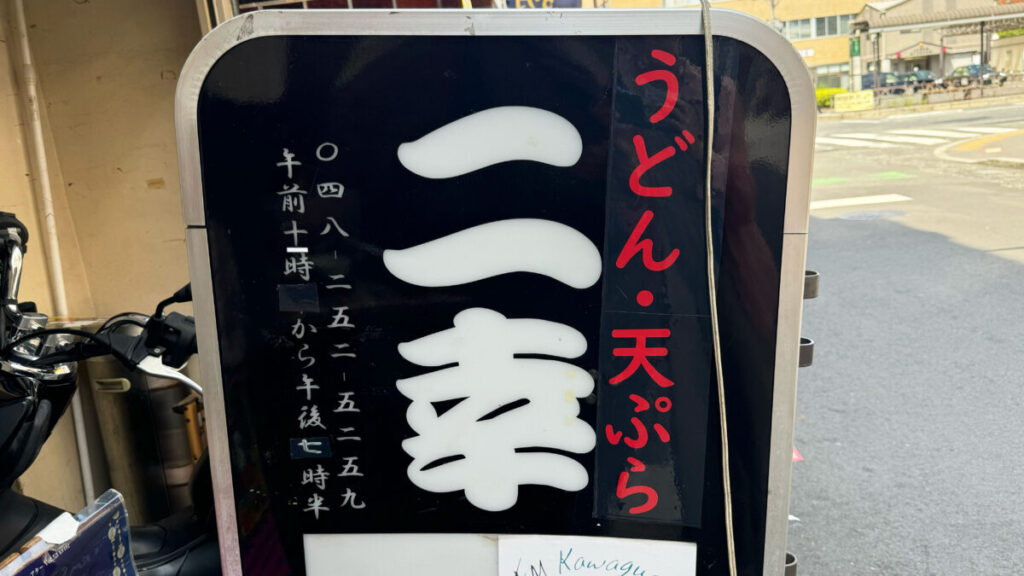 うどん・天ぷら
二幸
〇四八-二五二-五二五九
午前十時から午後七時半
Kawagu